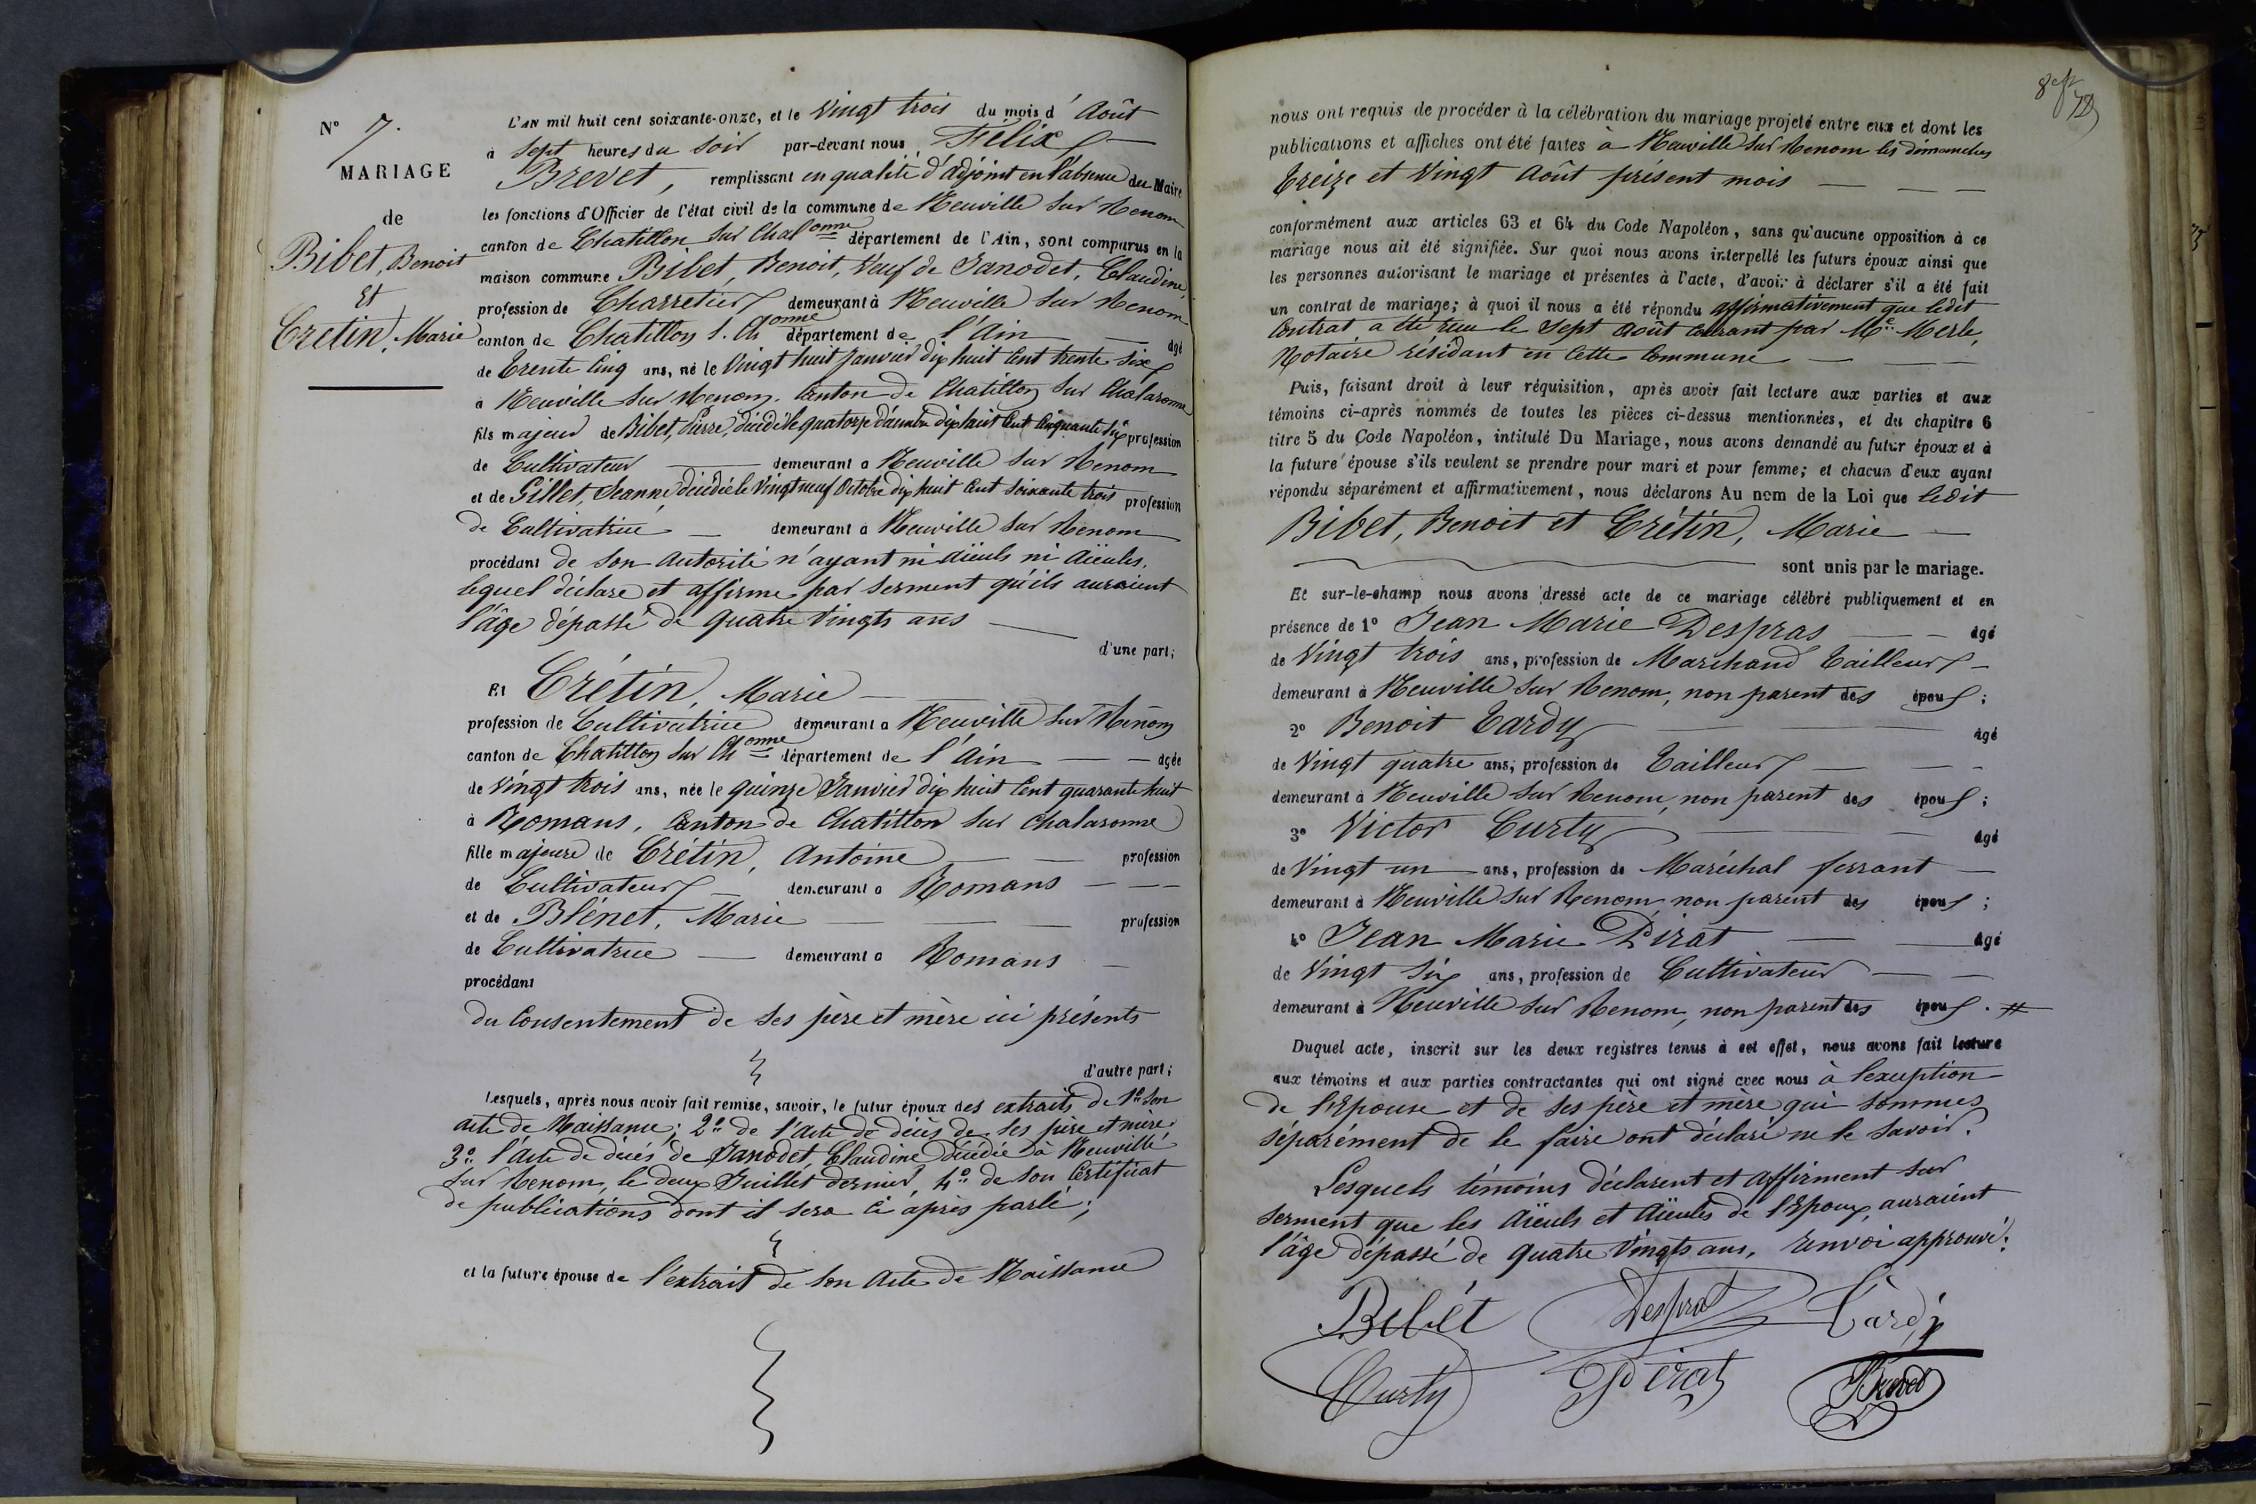 N° 7.
MARIAGE
de
Bibet, Benoit
Et
Crétin, Marie
L'AN mil huit cent soixante-onze, et le Vingt trois du mois d'Août
à Sept heures du Soir par-devant nous Félix
Brevet, remplissant en qualité d'adjoint en l'absence du Maire
les fonctions d'Officier de l'état civil de la commune de Neuville sur Renom
canton de Chatillon sur Chalonne département de l'Ain, sont comparus en la
maison commune Bibet, Benoit, Veuf de Janodet, Claudine,
profession de Charretier demeurant à Neuville sur Renom
canton de Chatillon s. Chonne département de l'Ain âgé
de Trente Cinq ans, né le Vingt huit Janvier dix huit Cent trente Six
à Neuville sur Renom, Canton de Chatillon sur Chalaronne
fils majeur de Bibet, Pierre, décédé le quatorze Décembre dix huit Cent Cinquante Six profession
de Cultivateur demeurant à Neuville sur Renom
et de Gillet, Jeanne, décédée le Vingt neuf Octobre dix huit Cent Soixante trois profession
de Cultivatrice demeurant à Neuville sur Renom
procédant de son autorité n'ayant ni aïeuls ni aïeules,
lequel déclare et affirme par serment qu'ils auraient
l'âge dépassé de quatre Vingts ans
d'une part;
Et Crétin, Marie
profession de Cultivatrice demeurant à Neuville sur Renom
canton de Chatillon sur Chonne département de l'Ain âgée
de Vingt trois ans, née le quinze Janvier dix huit Cent quarante huit
à Romans, Canton de Chatillon sur Chalaronne
fille majeure de Crétin, Antoine profession
de Cultivateur demeurant à Romans
et de Blénet, Marie profession
de Cultivatrice demeurant à Romans
procédant
du Consentement de ses père et mère ici présents
d'autre part;
Lesquels, après nous avoir fait remise, savoir, le futur époux des extraits de 1° son
acte de Naissance; 2° de l'Acte de décès de ses père et mère
3° l'Acte de décès de Janodet Claudine décédée à Neuville
sur Renom, le deux Juillet dernier, 4° de son Certificat
de publications dont il sera ci après parlé;
et la future épouse de l'extrait de son Acte de Naissance
nous ont requis de procéder à la célébration du mariage projeté entre eux et dont les
publications et affiches ont été faites à Neuville sur Renom les dimanches
Treize et Vingt Août présent mois
conformément aux articles 63 et 64 du Code Napoléon, sans qu'aucune opposition à ce
mariage nous ait été signifiée. Sur quoi nous avons interpellé les futurs époux ainsi que
les personnes autorisant le mariage et présentes à l'acte, d'avoir à déclarer s'il a été fait
un contrat de mariage; à quoi il nous a été répondu affirmativement que ledit
Contrat a été reçu le Sept Août Courant par Me Merle,
Notaire résidant en Cette Commune
Puis, faisant droit à leur réquisition, après avoir fait lecture aux parties et aux
témoins ci-après nommés de toutes les pièces ci-dessus mentionnées, et du chapitre 6
titre 5 du Code Napoléon, intitulé Du Mariage, nous avons demandé au futur époux et à
la future épouse s'ils veulent se prendre pour mari et pour femme; et chacun d'eux ayant
répondu séparément et affirmativement, nous déclarons Au nom de la Loi que ledit
Bibet, Benoit et Crétin, Marie
sont unis par le mariage.
Et sur-le-champ nous avons dressé acte de ce mariage célébré publiquement et en
présence de 1° Jean Marie Despras âgé
de Vingt trois ans, profession de Marchand Tailleur
demeurant à Neuville sur Renom, non parent des époux;
2° Benoit Tardy âgé
de Vingt quatre ans, profession de Tailleur
demeurant à Neuville sur Renom, non parent des époux;
3° Victor Curty âgé
de Vingt un ans, profession de Maréchal ferrant
demeurant à Neuville sur Renom, non parent des époux;
4° Jean Marie Pirat âgé
de Vingt Six ans, profession de Cultivateur
demeurant à Neuville sur Renom, non parent des époux. #
Duquel acte, inscrit sur les deux registres tenus à cet effet, nous avons fait lecture
aux témoins et aux parties contractantes qui ont signé avec nous à l'exception
de l'Epouse et de ses père et mère qui sommés
séparément de le faire ont déclaré ne le savoir.
Lesquels témoins déclarent et affirment sur
serment que les Aïeuls et Aïeules de l'Epoux, auraient
l'âge dépassé de quatre Vingts ans, renvoi approuvé.
Bibét Despras Tardy
Curty Pirat Brevet